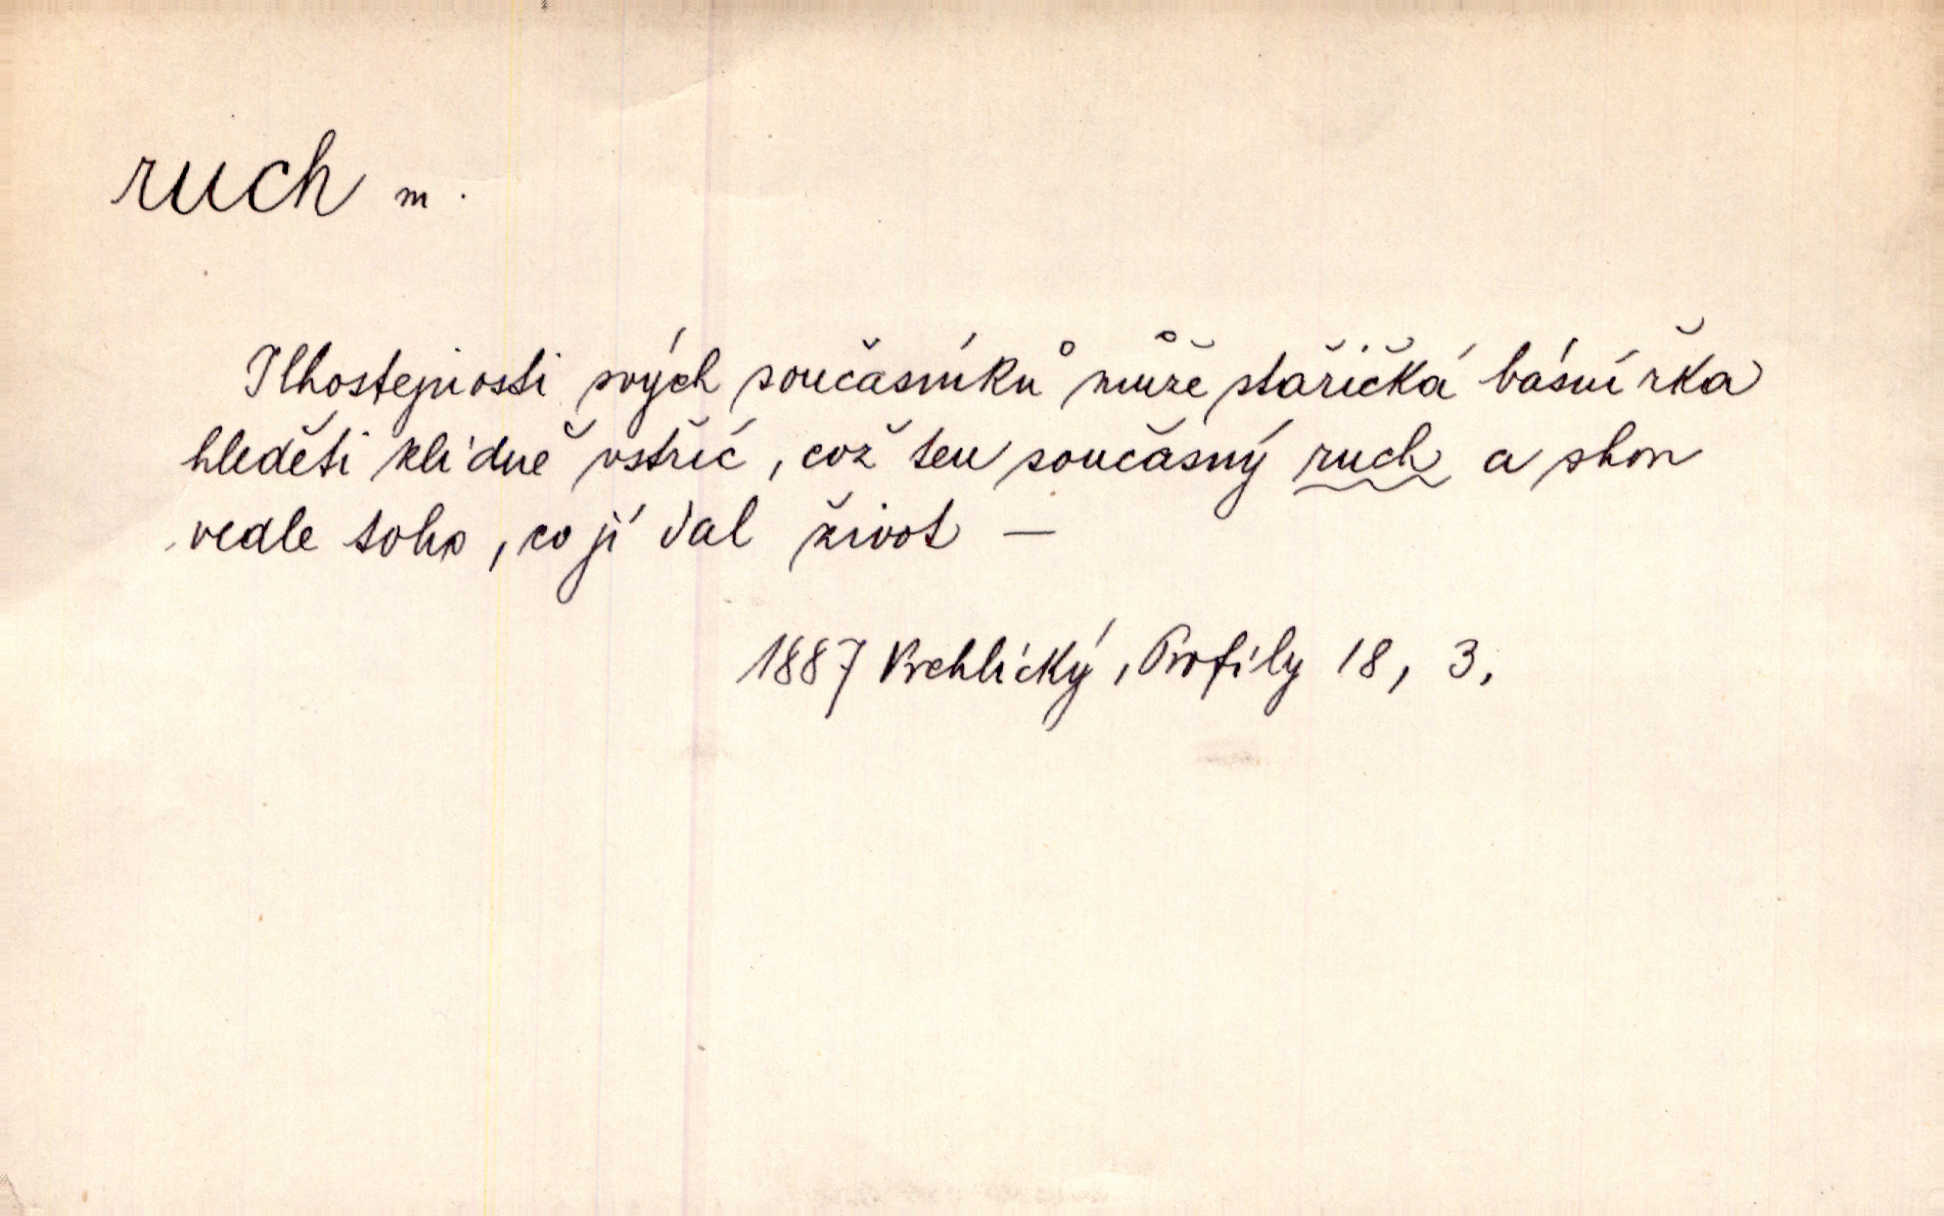 ruch m.
Lhostejnosti svých současníků může stařičká básnířka
hleděti klidně vstříc, což ten současný ruch a shon
vedle toho, co jí dal život —
1887 Vrchlický, Profily 18, 3.